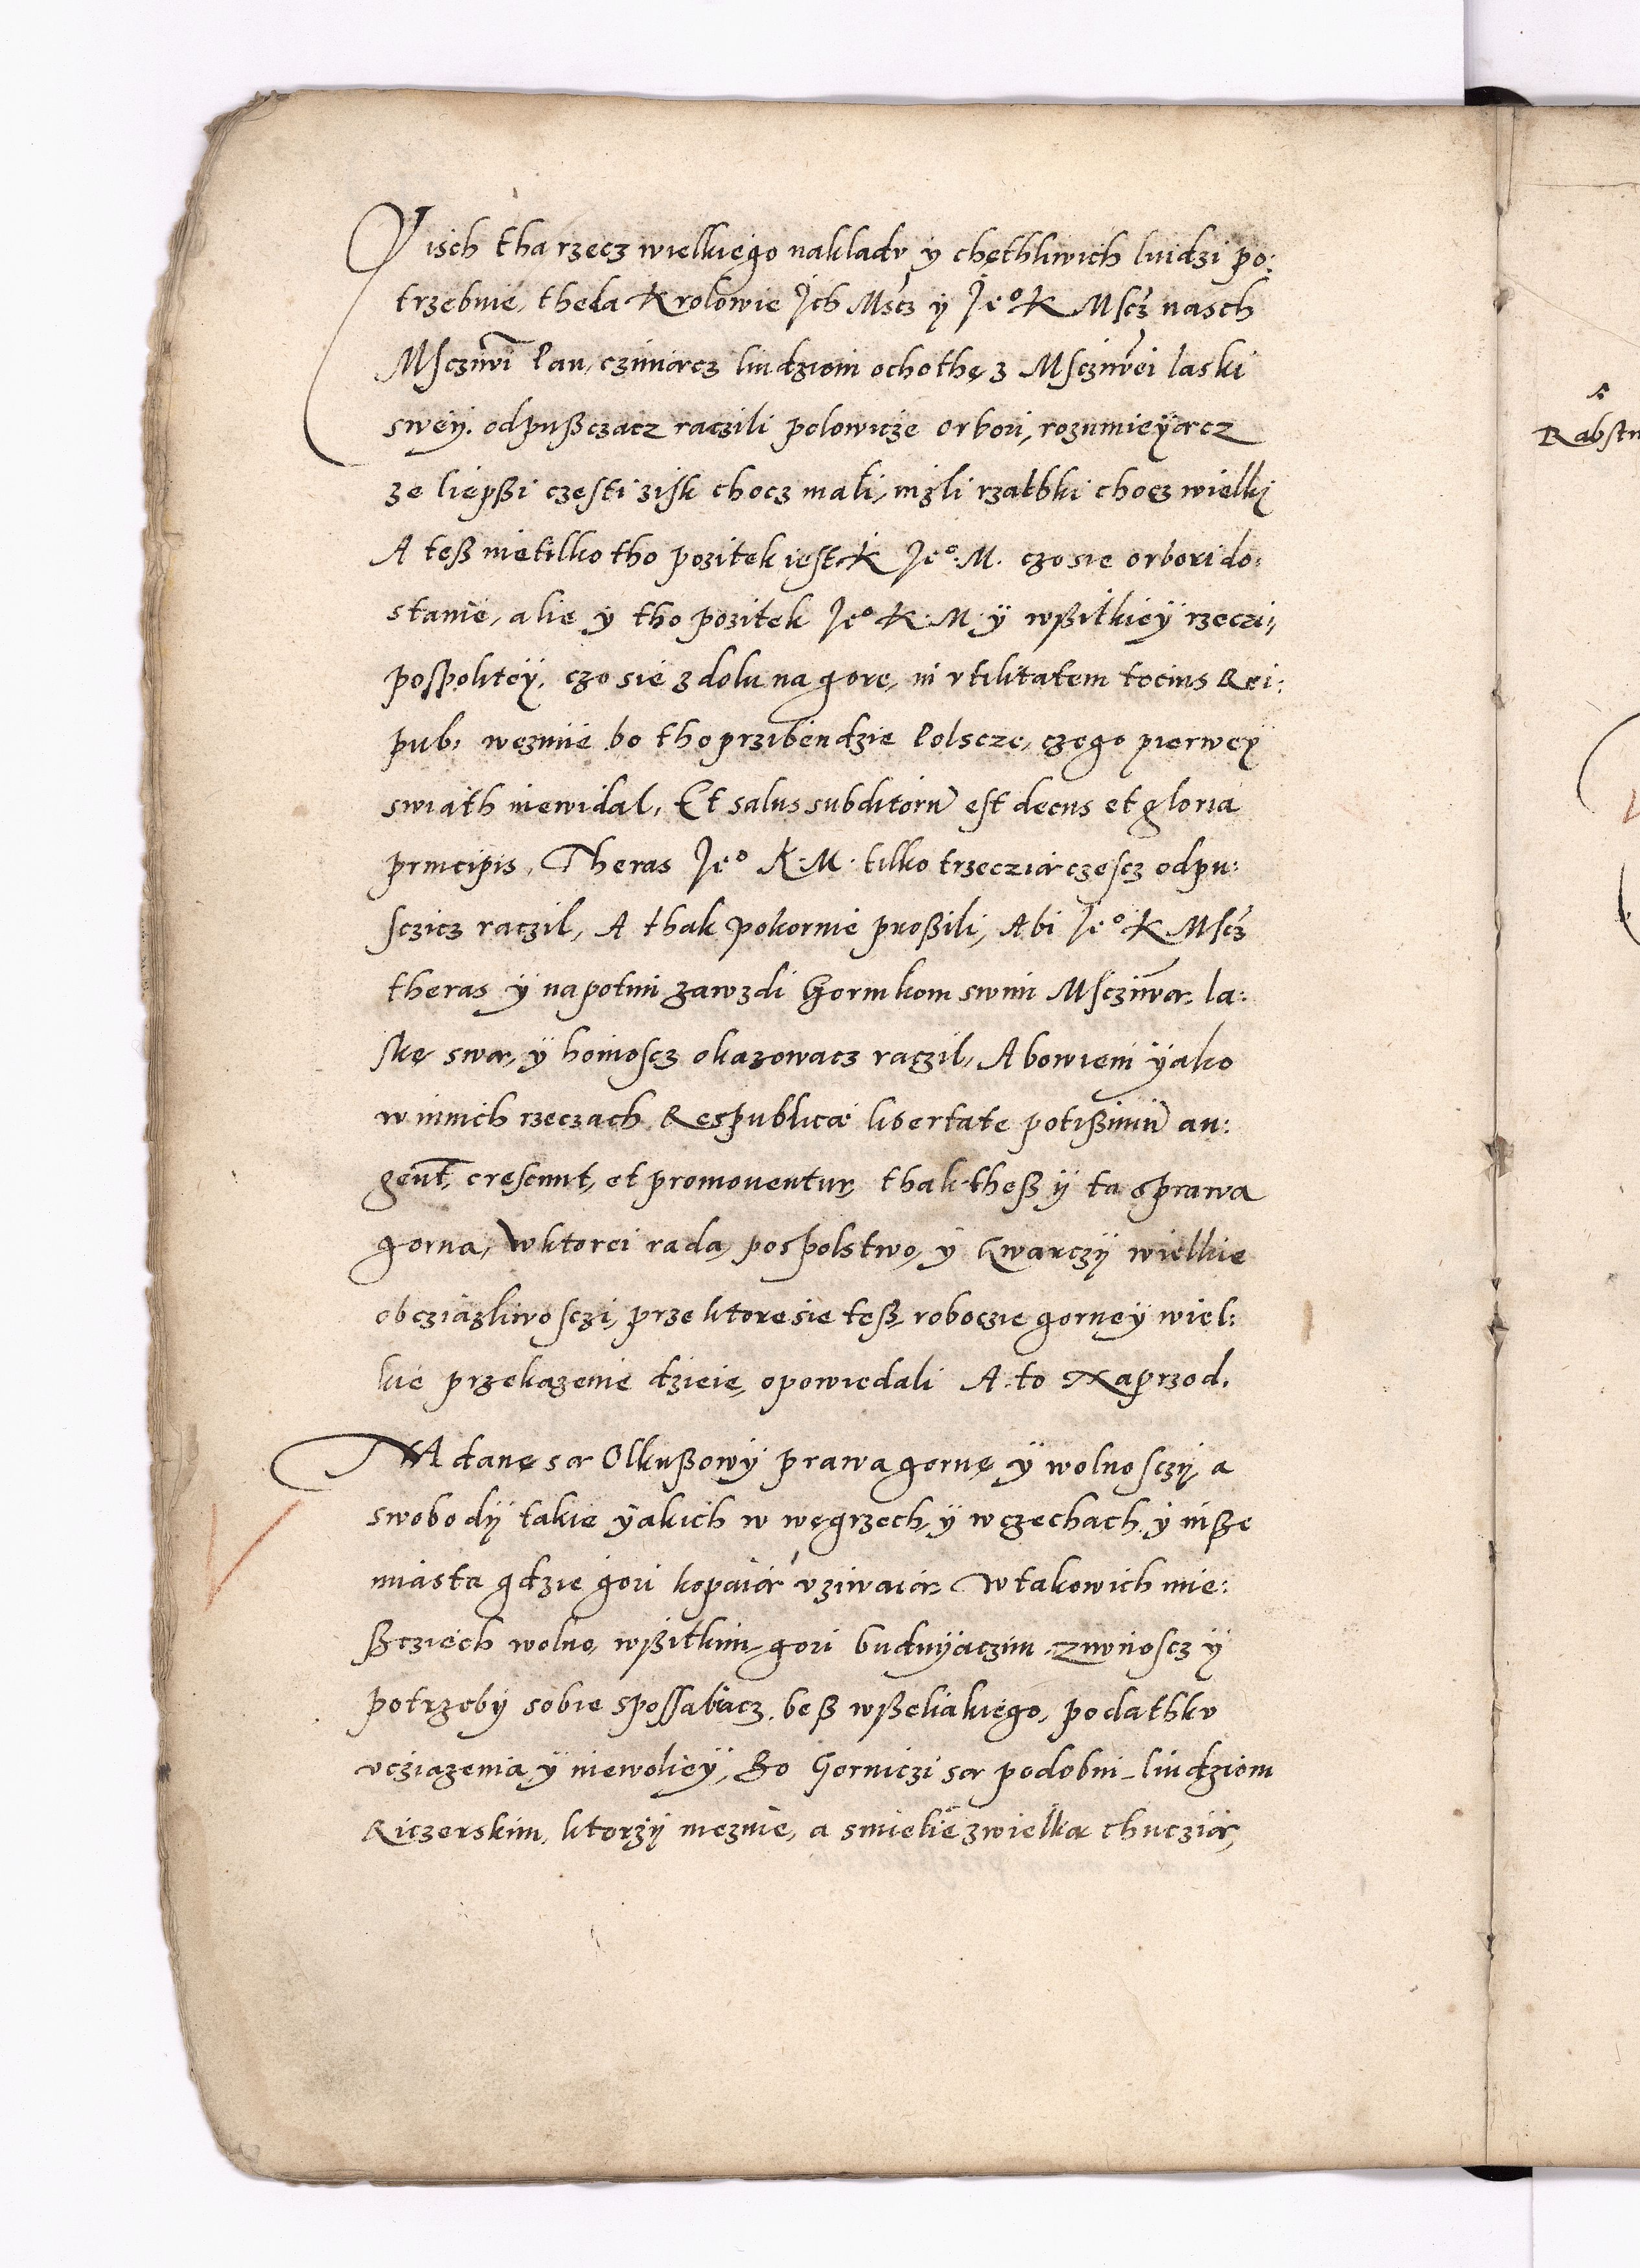 Yisch tha rzecz wielkiego nakladv y chęthliwich liudzi po:
trzebuie, theda Krolowie Ich Mscz y Je⁰ K Mscz nasch
Mscziwi Pan, cziniącz liudziom ochothę z Msczиwei laski
swey. odpußczacz raczili polowicze orbori, rozumieyącz
ze liepßi częsti zisk chocz mali, nizli rzatbki chocz wielki
A teß nietilko tho pozitek iest K Je⁰: M. czo sie orbori do:
stanie, alie y tho pozitek Je⁰ K: M: ÿ wßitkieÿ rzeczi„
pospoliteÿ, czo sie z dolu na gorę, in vtilitatem tocius Rei:
pub: wezmie bo tho przibendzie Polscze, czego pierwey
swiath niewidal, Et salus subditorū est decus et gloria
principis, Theras Je⁰ K: M: tilko trzeczią czescz odpu:
sczicz raczil, A thak pokornie prosßili, Abi Je⁰ K Mscz
theras ÿ napotim zawzdi Gornikom swim Mscziwą la:
skę swą, ÿ hoinoscz okazowacz raczil, Abowiem ÿako
w innich rzeczach Respublicæ libertate potißimū au:
gent, crescunt, et promouentur, thak theß ÿ ta sprawa
gorna, Wktorei rada, pospolstwo, ÿ Gwarczÿ wielkie
obcziązliwosczi, prze ktore sie teß roboczie gorneÿ wiel:
kie przekazenie dzieie, opowiedali A to Naprzod.
NA danę są Olkußowÿ prawa gornę ÿ wolnosczÿ, a
swobodÿ takie ÿakich w węgrzech, ÿ w czechach, ÿ inße
miasta gdzie gori kopaią vziwaią. W takowich mie:
ßcziech wolno, wßitkim gori buduÿączim zӱwnoscz ÿ
potrzebÿ sobie spossabiacz, beß wßeliakiego, podathkv
vcziązenia, ÿ niewolieÿ, Bo Gorniczi są podobni liudziom
Riczerskim, ktorzÿ męznie, a smielie zwielką chucziją,